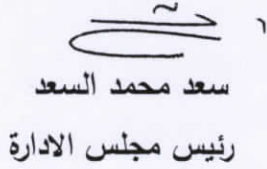 سعد محمد السعد
رئيس مجلس الادارة